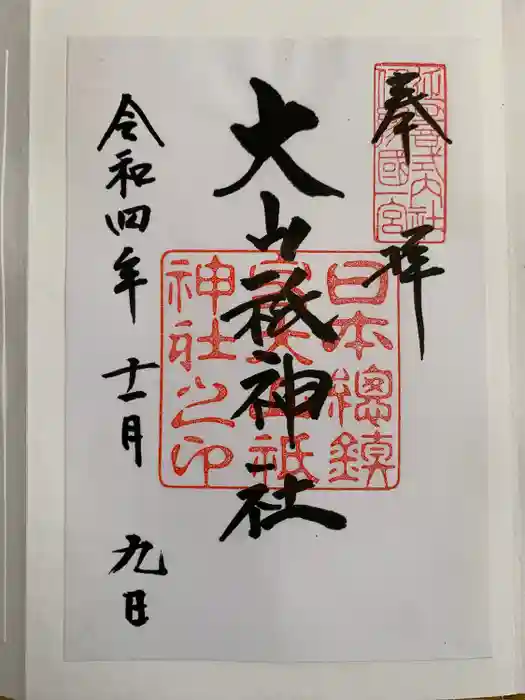 奉拝
大山祇神社
令和四年十一月九日
日本総鎮
守大山祇
神社之印
國一宮